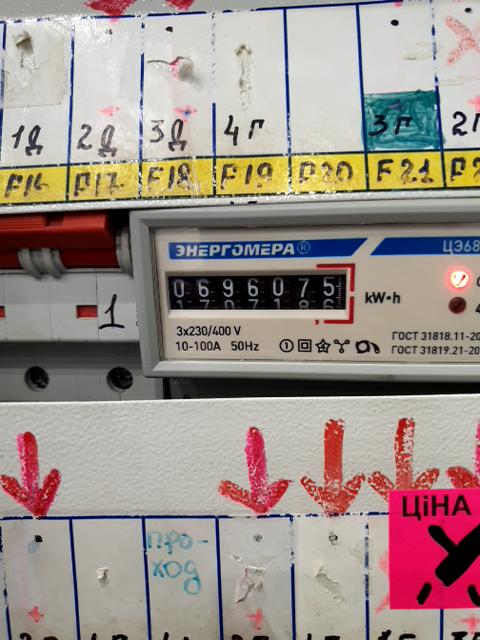 1Д 2Д 3Д 4Г 3Г 2Г
F16 F17 F18 F19 F20 F21
ЭНЕРГОМЕРА® ЦЭ68
0696075 kW•h
1
3x230/400 V
10-100A 50Hz
ГОСТ 31818.11-20
ГОСТ 31819.21-20
ЦіНА
про-
ход